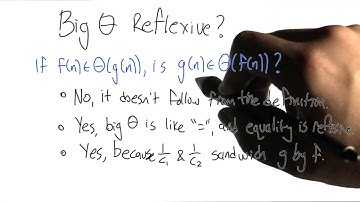 Big Θ Reflexive?
If f(n)∈Θ(g(n)), is g(n)∈Θ(f(n))?
• No, it doesn't follow from the definition.
• Yes, big Θ is like "=", and equality is reflexive.
• Yes, because 1/c₁ & 1/c₂ sandwich g by f.